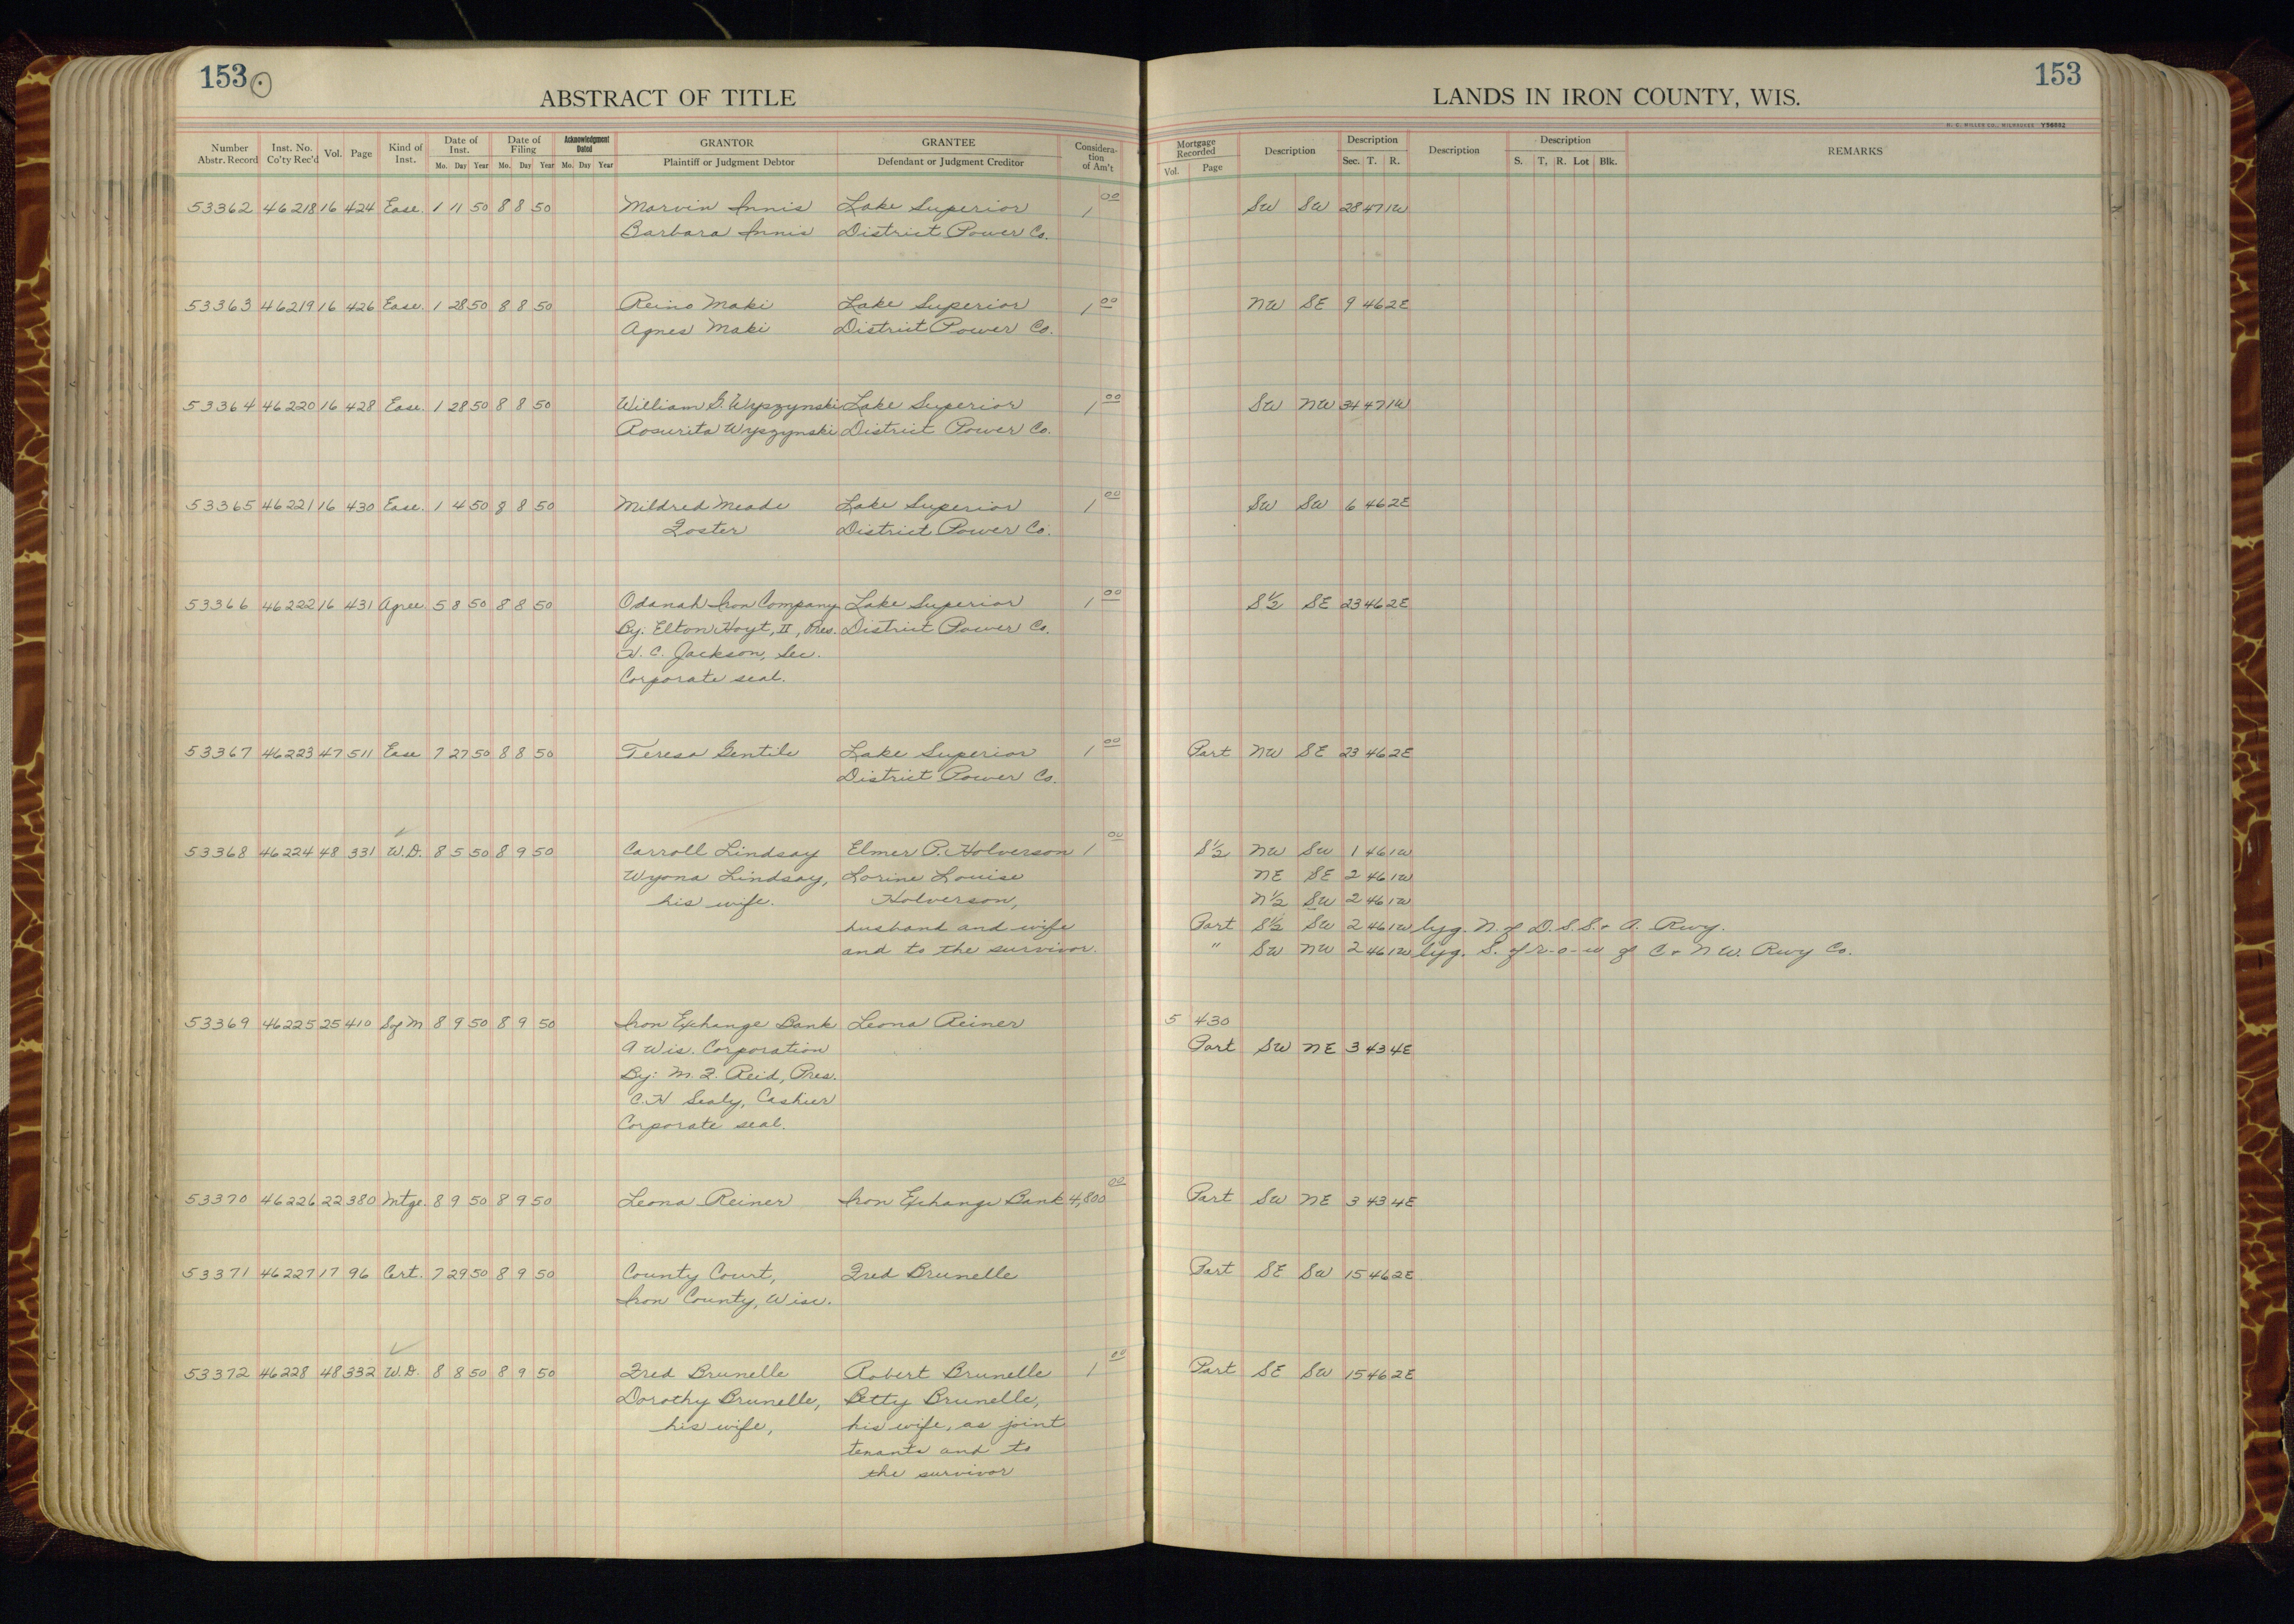 153
ABSTRACT OF TITLE
Number Abstr. Record | Inst. No. Co'ty Rec'd | Vol. | Page | Kind of Inst. | Date of Inst. Mo. Day Year | Date of Filing Mo. Day Year | Acknowledgment Dated Mo. Day Year | GRANTOR Plaintiff or Judgment Debtor | GRANTEE Defendant or Judgment Creditor | Considera-tion of Am't
53362 46218 16 424 Ease. 1 11 50 8 8 50 Marvin Innis Lake Superior 1 00
Barbara Innis District Power Co.
53363 46219 16 426 Ease. 1 28 50 8 8 50 Reino Maki Lake Superior 1 00
Agnes Maki District Power Co.
53364 46220 16 428 Ease. 1 28 50 8 8 50 William G. Wyszynski Lake Superior 1 00
Rosurita Wyszynski District Power Co.
53365 46221 16 430 Ease. 1 4 50 8 8 50 Mildred Meade Lake Superior 1 00
Foster District Power Co.
53366 46222 16 431 Agree. 5 8 50 8 8 50 Odanah Iron Company Lake Superior 1 00
By: Elton Hoyt, II, Pres. District Power Co.
H. C. Jackson, Sec.
Corporate seal.
53367 46223 47 511 Ease 7 27 50 8 8 50 Teresa Gentile Lake Superior 1 00
District Power Co.
53368 46224 48 331 W.D. 8 5 50 8 9 50 Carroll Lindsay Elmer P. Holverson 1 00
Wyona Lindsay, Lorine Louise
his wife. Holverson,
husband and wife
and to the survivor.
53369 46225 25 410 Sof M 8 9 50 8 9 50 Iron Exchange Bank Leona Reiner
A Wis. Corporation
By: M. F. Reid, Pres.
C. H Sealy, Cashier
Corporate seal.
53370 46226 22 380 Mtge. 8 9 50 8 9 50 Leona Reiner Iron Exchange Bank 4,800 00
53371 46227 17 96 Cert. 7 29 50 8 9 50 County Court, Fred Brunelle
Iron County, Wisc.
53372 46228 48 332 W.D. 8 8 50 8 9 50 Fred Brunelle Robert Brunelle 1 00
Dorothy Brunelle, Betty Brunelle,
his wife, his wife, as joint
tenants and to
the survivor
153
LANDS IN IRON COUNTY, WIS.
H. C. MILLER CO., MILWAUKEE Y56882
Mortgage Recorded Vol. Page | Description | Description Sec. T. R. | Description | Description S. T. R. Lot Blk. | REMARKS
SW SW 28 47 1W
NW SE 9 46 2E
SW NW 34 47 1W
SW SW 6 46 2E
S½ SE 23 46 2E
Part NW SE 23 46 2E
S½ NW SW 1 46 1W
NE SE 2 46 1W
N½ SW 2 46 1W
Part S½ SW 2 46 1W lyg. N. of D.S.S. & A. Rwy.
" SW NW 2 46 1W lyg. S. of r-o-w of C & N W. Rwy Co.
5 430
Part SW NE 3 43 4E
Part SW NE 3 43 4E
Part SE SW 15 46 2E
Part SE SW 15 46 2E